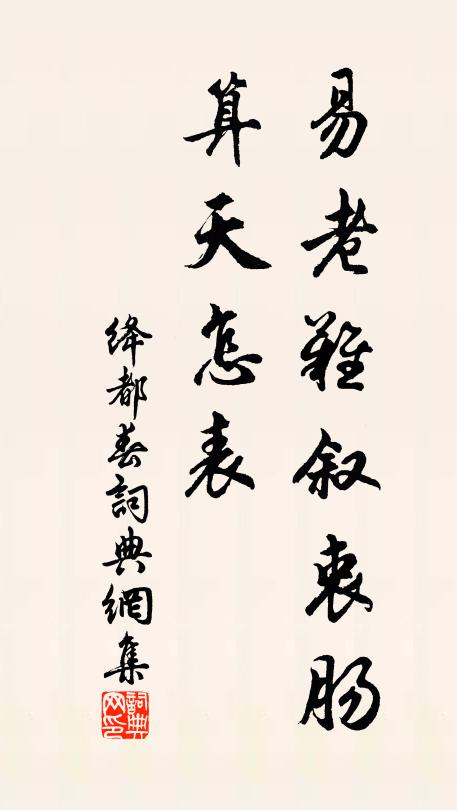 易老難叙衷肠
算天怎表
绛都春詞典網集
詞典网印